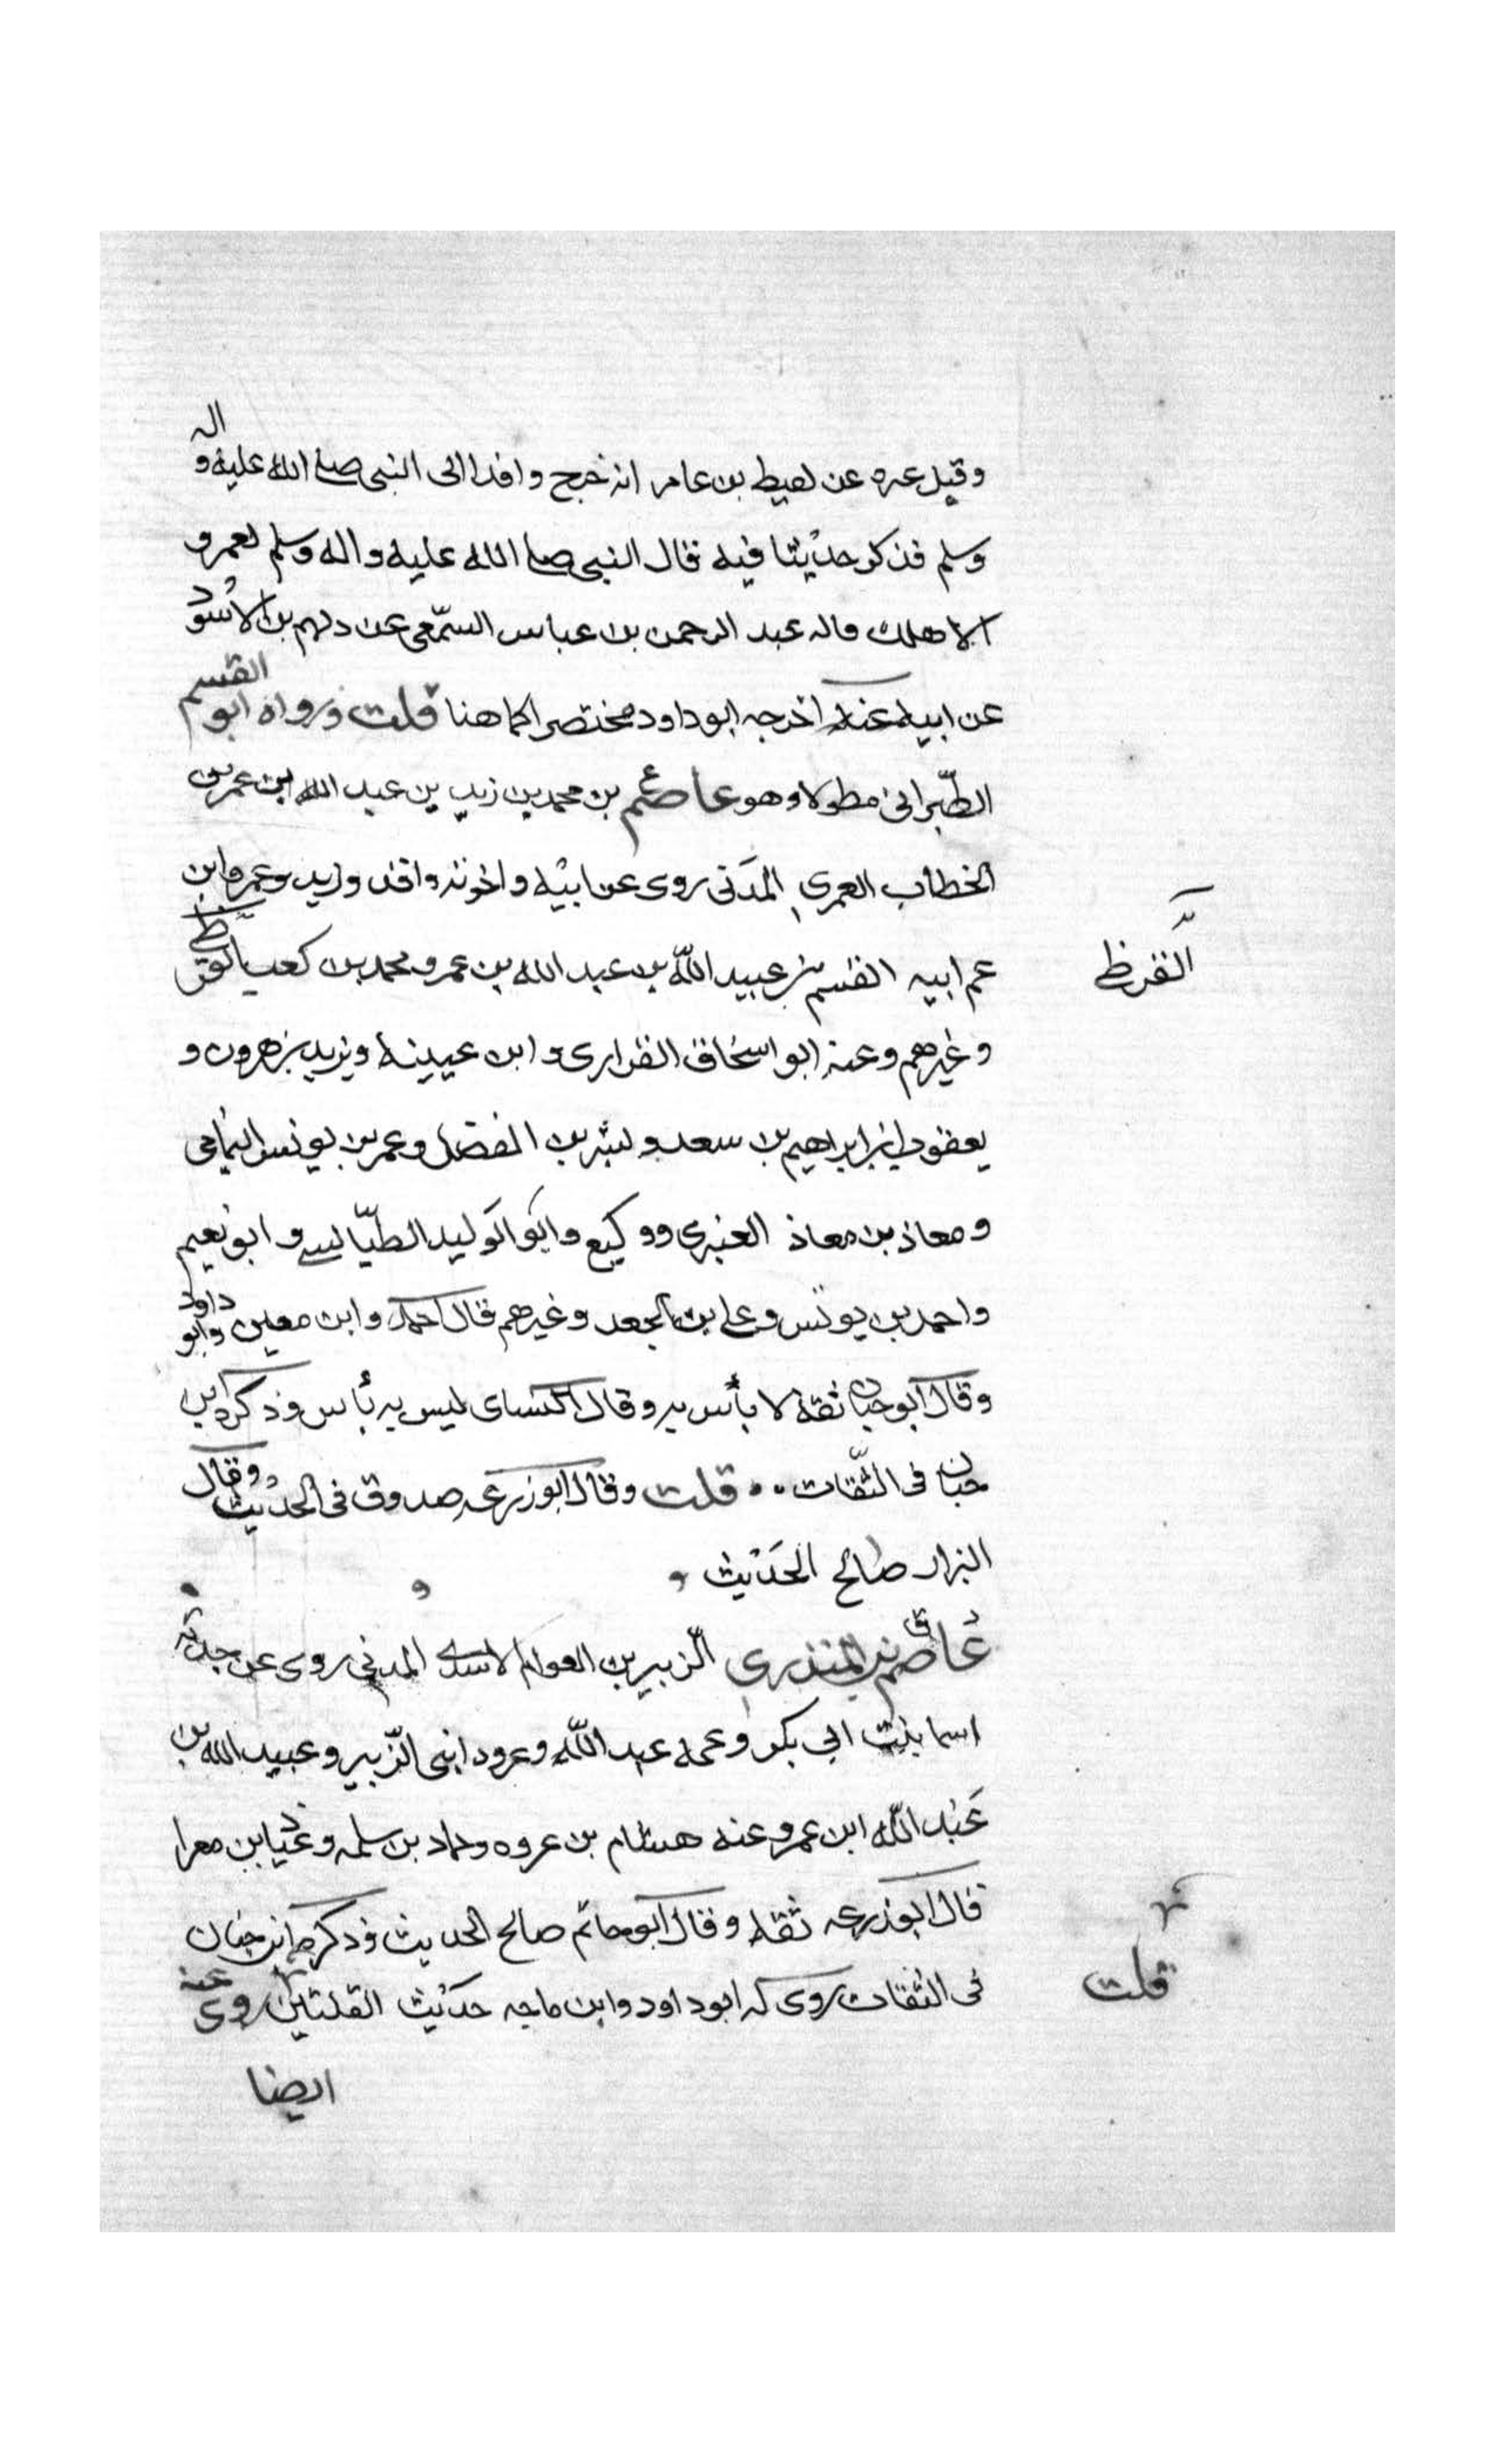 اله
وقيل عن لقيط بن عامر انه خرج وافدا الى النبى صلى الله عليه و
وسلم فذكر حديثا فيه فقال النبى صلى الله عليه واله وسلم لعمرو
الاهلك قاله عبد الرحمن بن عباس السمّعى عن دلهم بن الاسود
عن ابيه عنه اخرجه ابو داود مختصرا كما هنا قلت ورواه ابو القسم
الطّبرانى مطولا وهو عاصم بن محمد بن زيد بن عبد الله ابن عمر بن
الخطاب العمرى المدنى روى عن ابيه واخوته واقد وزيد وعمر وابن
عم ابيه القسم بن عبيد اللّه بن عبد الله بن عمر ومحمد بن كعب القرظى
القرظى
وغيرهم وعنه ابو اسحاق الفزارى و ابن عيينه ويزيد بن هرون و
يعقوب ابن ابراهيم بن سعد وبشر بن المفضل وعمر بن يونس اليمامى
ومعاذ بن معاذ العنبرى ووكيع وابو الوليد الطيّالسى وابو نعيم
واحمد بن يونس وعلى بن الجعد وغيرهم قال احمد وابن معين وابو داود
وقال ابو حبان ثقة لا بأس به وقال النسائ ليس به بأس وذكره ابن
حبان فى الثّقات قلت وقال ابو زرعه صدوق فى الحديث وقال
البزار صالح الحديث
عاصم بن المنذر بن الزبير بن العوام الاسدى المدنى روى عن جدته
اسما بنت ابى بكر وعمه عبد اللّه وعروه ابنى الزّبير وعبيد الله بن
عبد اللّه ابن عمر وعنه هشام بن عروه وحماد بن سلمه و
قال ابو زرعه ثقه وقال ابو حاتم صالح الحديث وذكره ابن حبان
فى الثقات روى له ابو داود وابن ماجه حديث القلتين روى عنه
قلت
ايضا